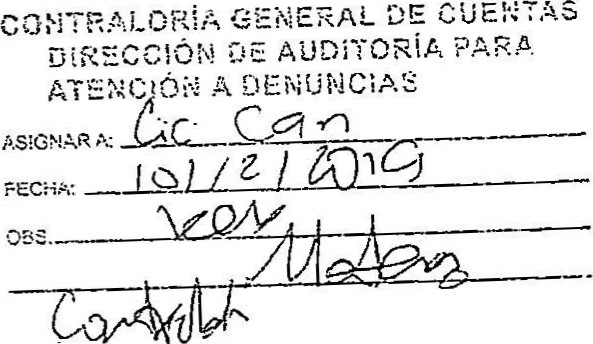 CONTRALORÍA GENERAL DE CUENTAS
DIRECCIÓN DE AUDITORÍA PARA
ATENCIÓN A DENUNCIAS
ASIGNAR A: Lic Can
FECHA: 10/12/2019
OBS.